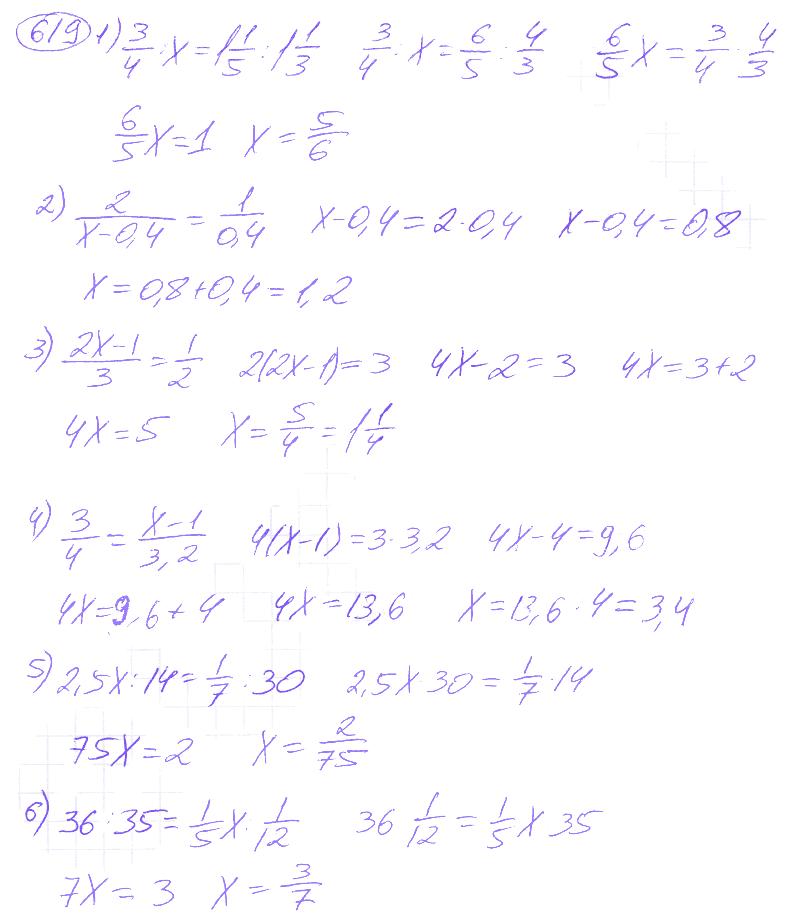 619 1) 3/4 : x = 1 1/5 : 1 1/3   3/4 : x = 6/5 : 4/3   6/5 x = 3/4 · 4/3
6/5 x = 1   x = 5/6
2) 2/(x-0,4) = 1/0,4   x-0,4 = 2·0,4   x-0,4 = 0,8
x = 0,8+0,4 = 1,2
3) (2x-1)/3 = 1/2   2(2x-1) = 3   4x-2 = 3   4x = 3+2
4x = 5   x = 5/4 = 1 1/4
4) 3/4 = (x-1)/3,2   4(x-1) = 3·3,2   4x-4 = 9,6
4x = 9,6+4   4x = 13,6   x = 13,6 · 4 = 3,4
5) 2,5x : 14 = 1/7 : 30   2,5x 30 = 1/7 · 14
75x = 2   x = 2/75
6) 36 : 35 = 1/5 x · 1/12   36 1/12 = 1/5 x 35
7x = 3   x = 3/7